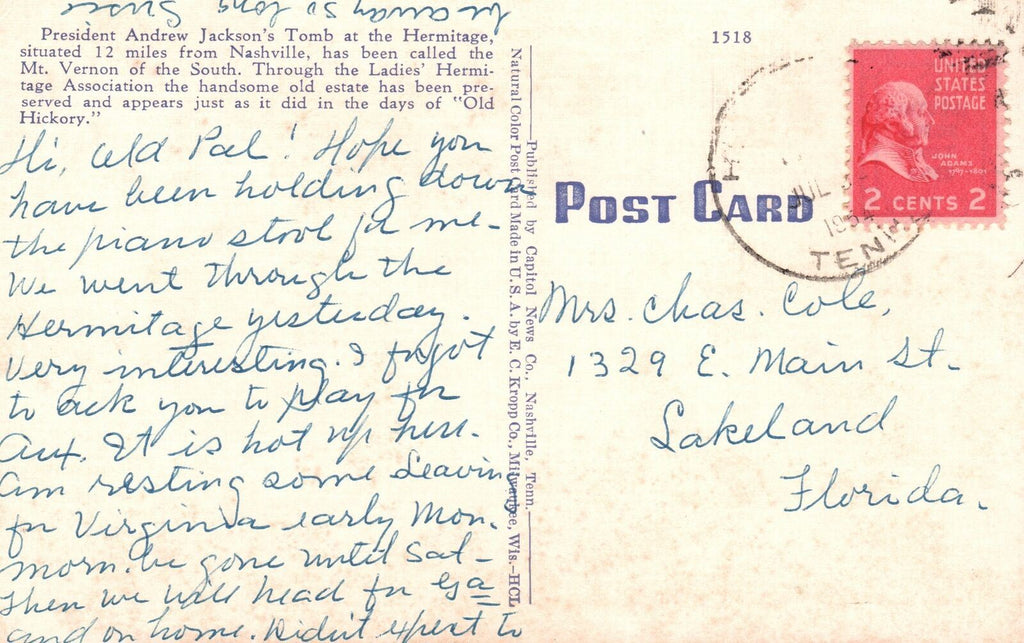 President Andrew Jackson's Tomb at the Hermitage,
situated 12 miles from Nashville, has been called the
Mt. Vernon of the South. Through the Ladies' Hermi-
tage Association the handsome old estate has been pre-
served and appears just as it did in the days of "Old
Hickory."
Hi, Old Pal! Hope you
have been holding down
the piano stool for me-
We went through the
Hermitage yesterday.
Very interesting. I forgot
to ask you to play for
Aux. It is hot up here.
Am resting some Leaving
for Virginia early Mon.
morn. be gone until Sat-
Then we will head for Ga
and on home. Didn't expect to
be away so long
Published by Capitol News Co., Nashville, Tenn.
Natural Color Post Card Made in U.S.A. by E. C. Kropp Co., Milwaukee, Wis.-HCL
1518
POST CARD
UNITED
STATES
POSTAGE
JOHN
ADAMS
1797-1801
2 CENTS 2
JUL
1954
TENN.
Mrs. Chas. Cole,
1329 E. Main St.
Lakeland
Florida.